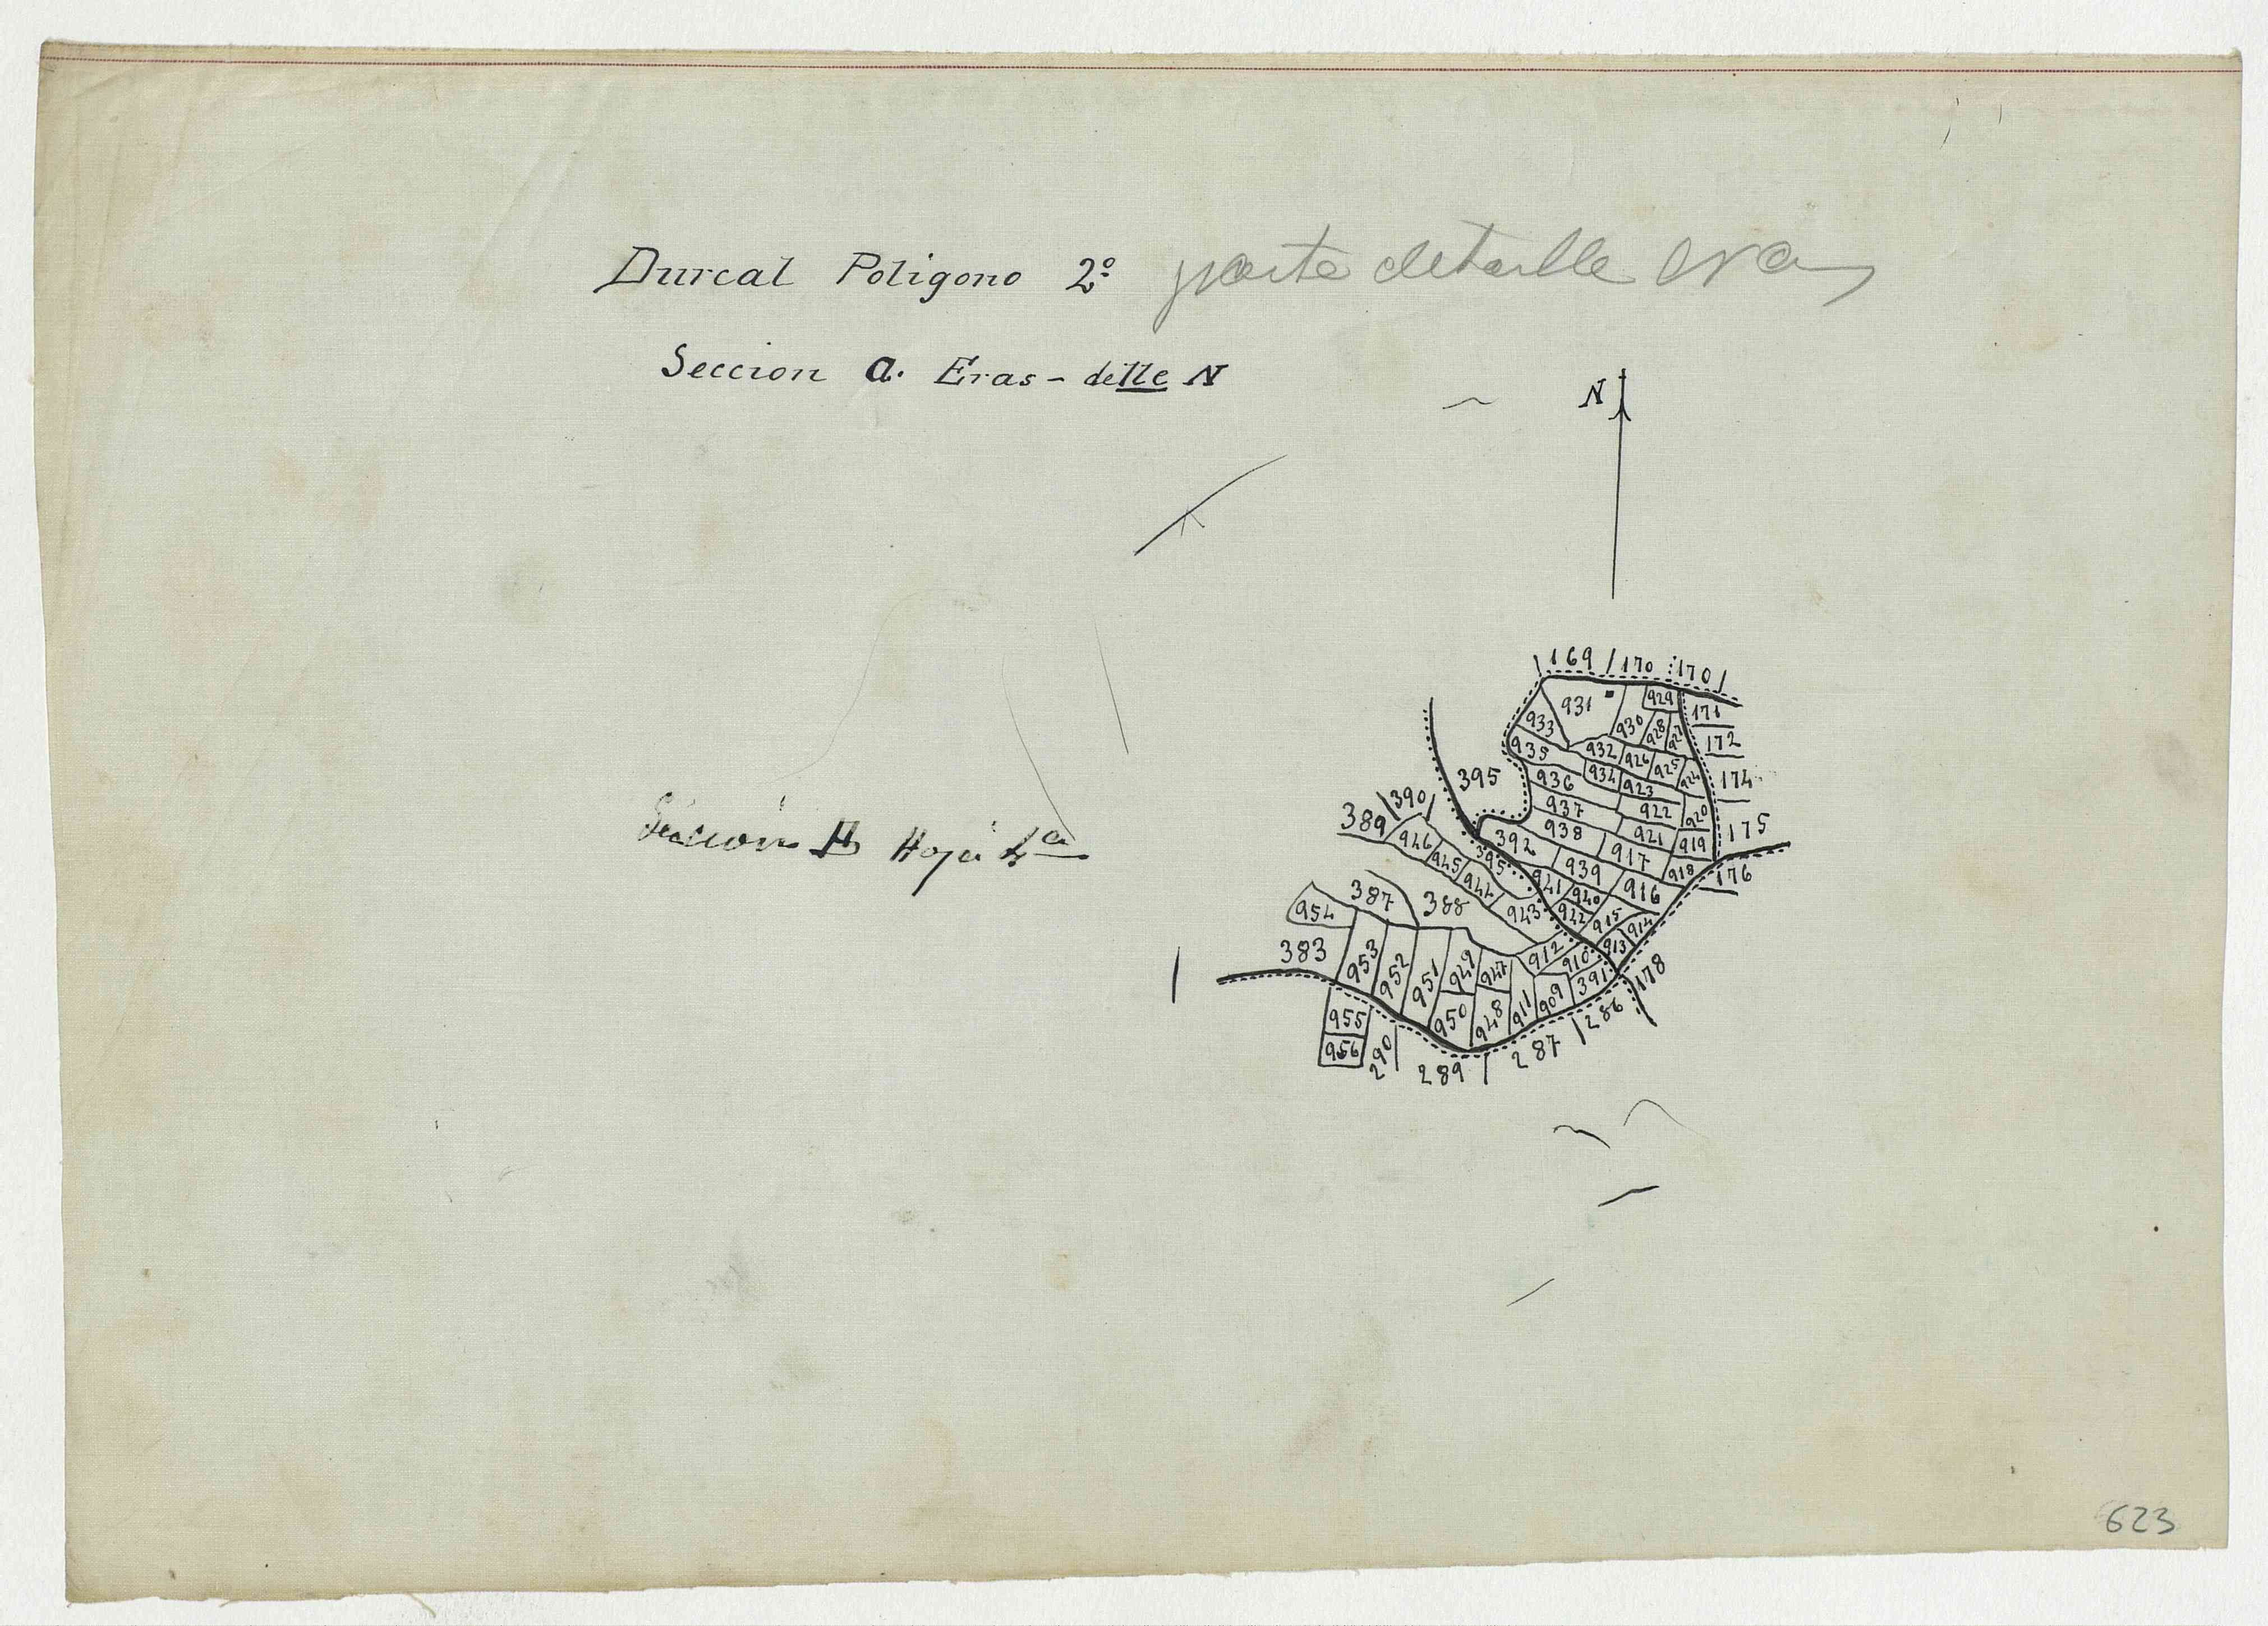 Durcal Poligono 2º parte detalle eras
Seccion a. Eras - delle N
N
169 170 170
931 929 171
933 930 928 927 172
935 932 926 925 174
395 936 934 923 924
390 937 922 920
389 938 921 919 175
946 392 917 918 176
945 395 939 916
944 941 940
387 388 943 942 915 914
954 912 913
383 953 952 951 949 947 910 391 178
950 948 911 909 286
955 287
956 290 289
Sección A Hoja 4ª
623